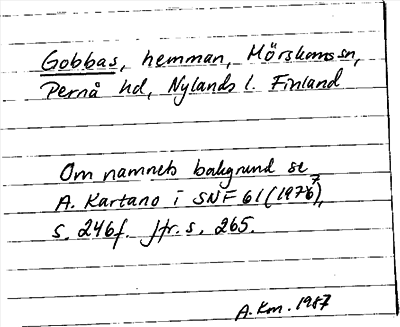 Gobbas, hemman, Mörskoms sn,
Pernå hd, Nylands l. Finland
Om namnets bakgrund se
A. Kartano i SNF 61 (1976/7),
s. 246f. Jfr. s. 265.
A.Km. 1987